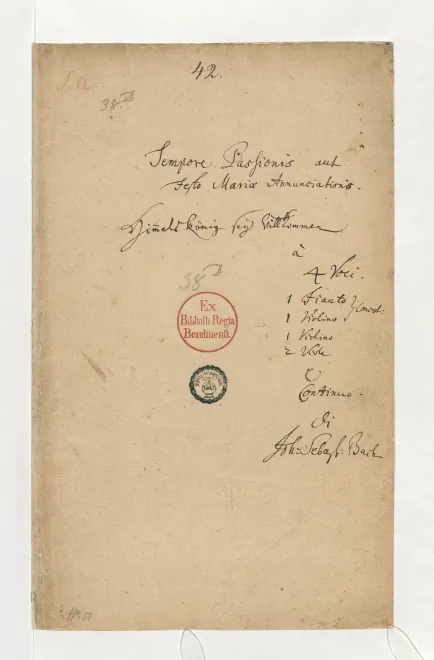 42.
38.
Tempore Passionis aut
Festo Mariæ Annunciationis.
Himels König sey Willkommen
à
4 Voci.
1 Flauto
1 Violino Concert:
1 Violino
2 Viole
e
Continuo.
di
Joh: Sebast: Bach
38.
Ex
Biblioth. Regia
Berolinenſi.